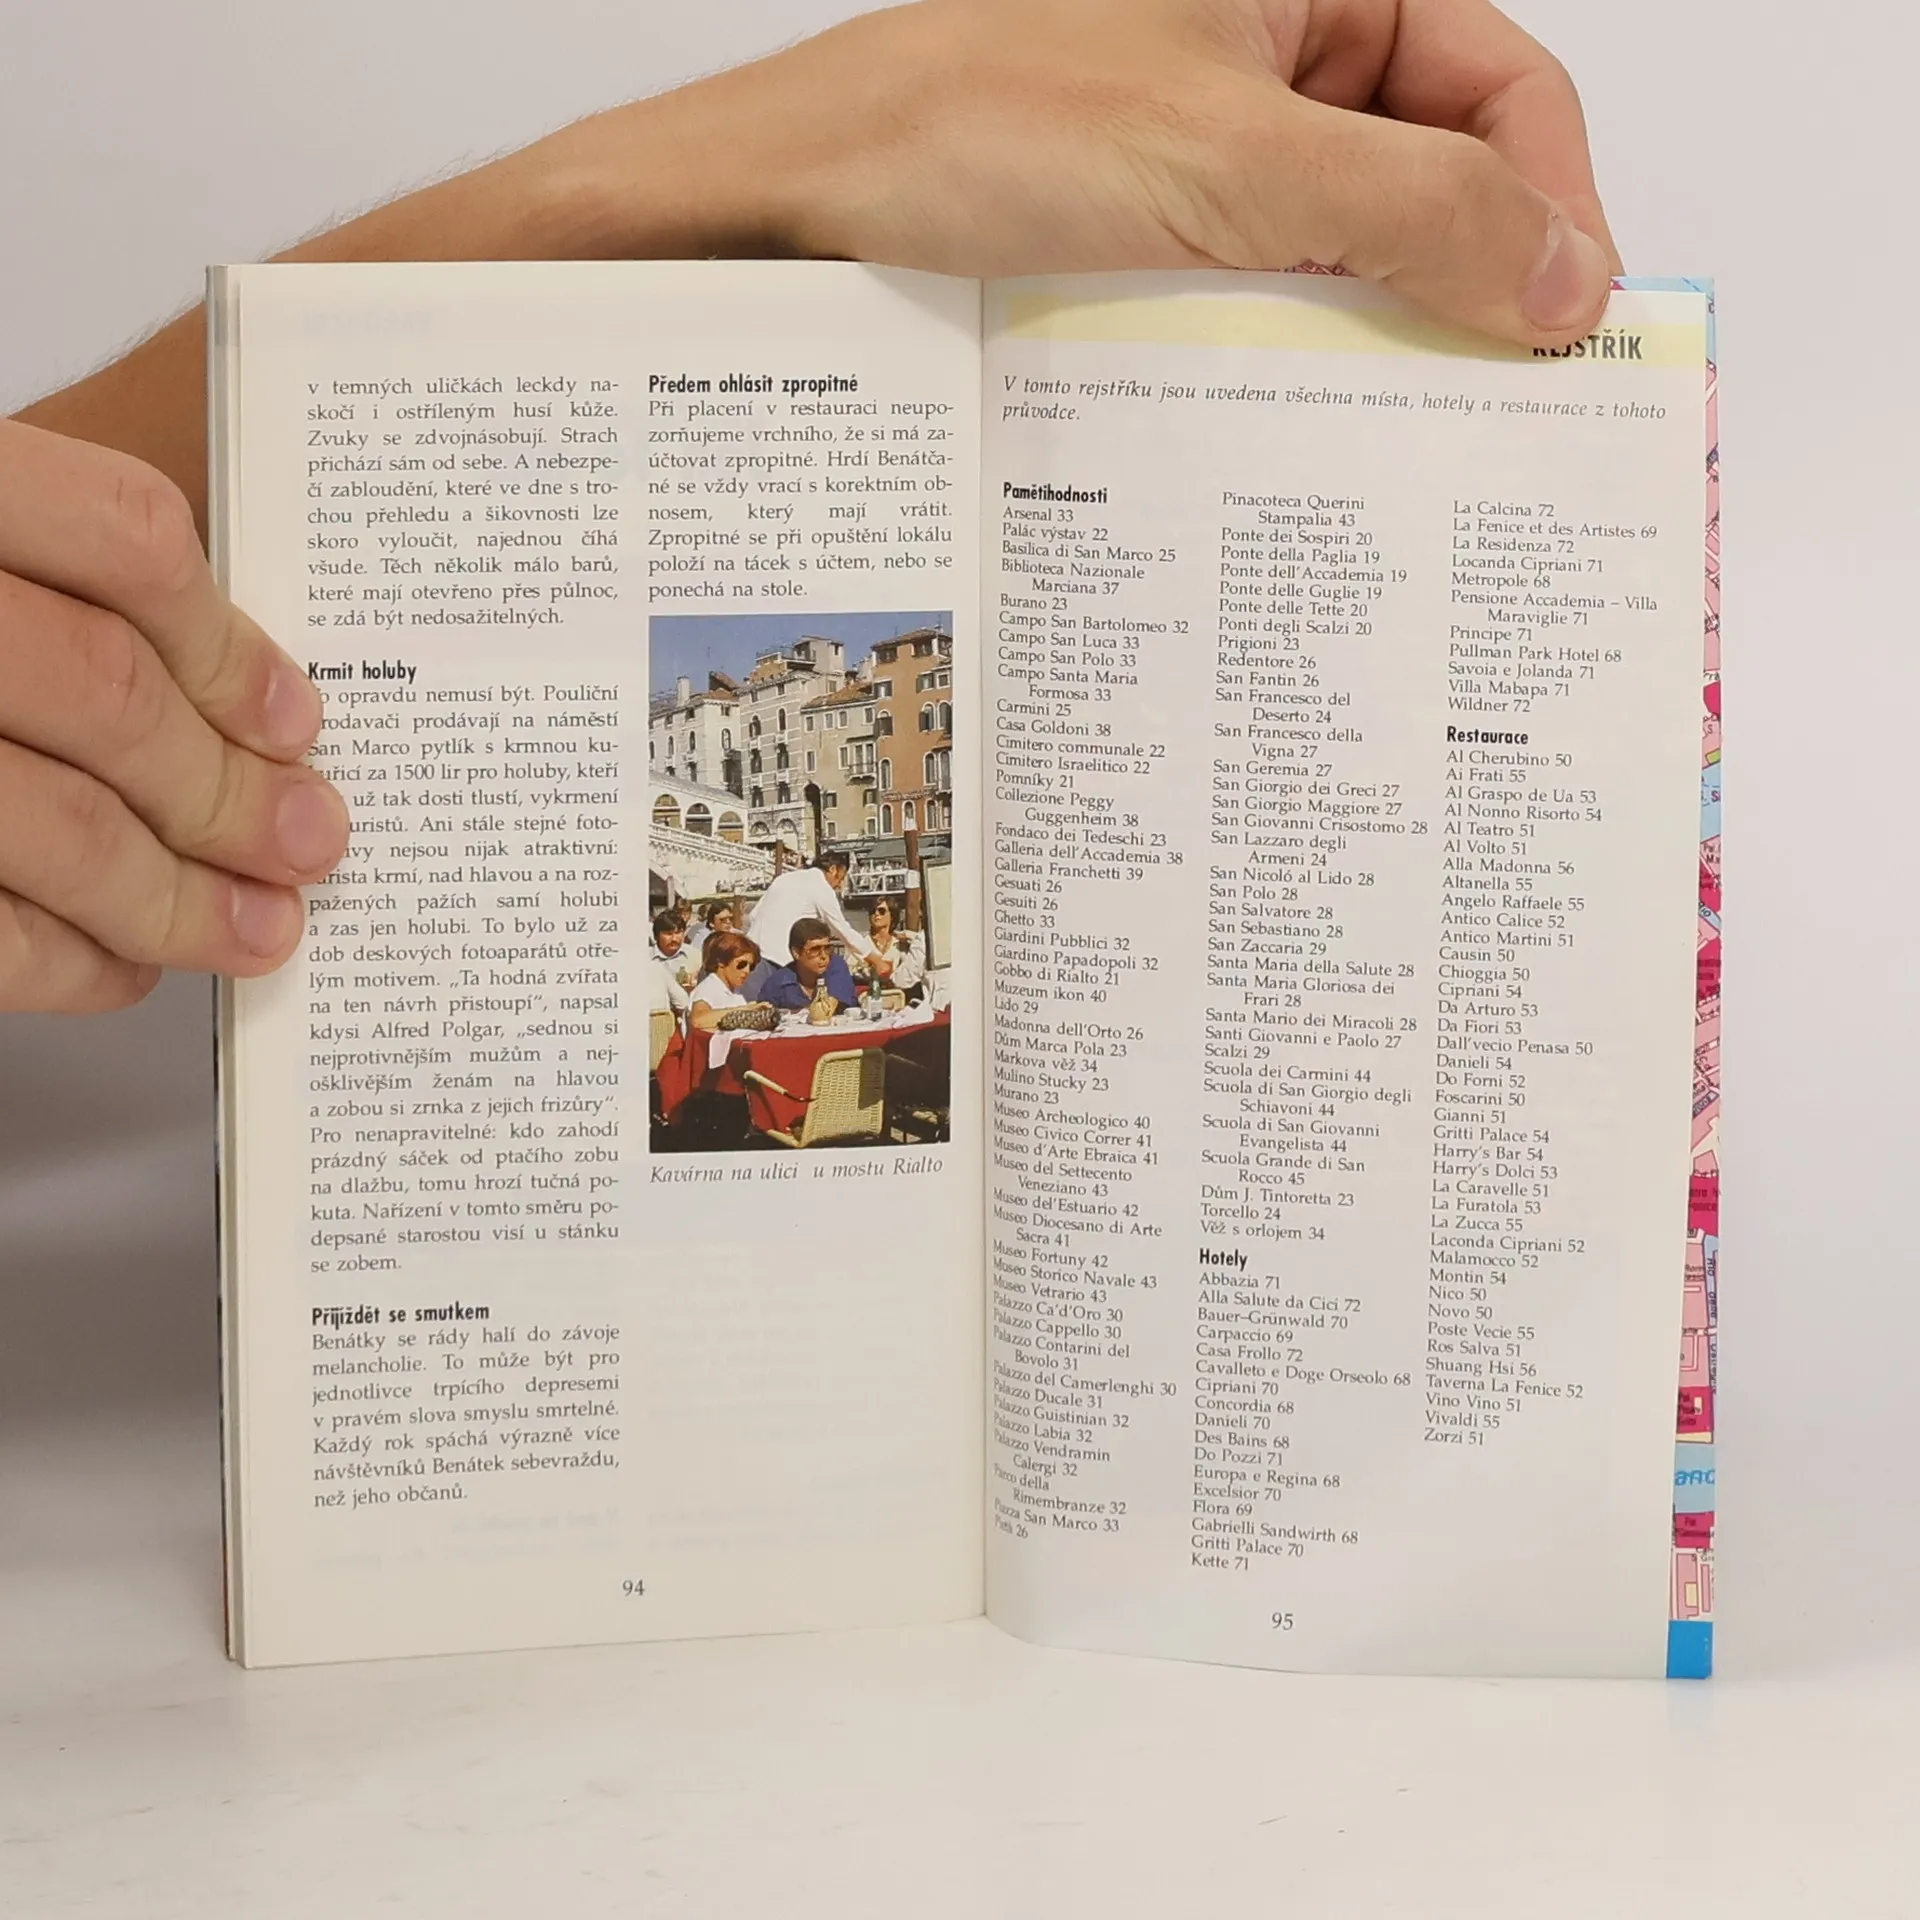 v temných uličkách leckdy na-
skočí i ostříleným husí kůže.
Zvuky se zdvojnásobují. Strach
přichází sám od sebe. A nebezpe-
čí zabloudění, které ve dne s tro-
chou přehledu a šikovnosti lze
skoro vyloučit, najednou číhá
všude. Těch několik málo barů,
které mají otevřeno přes půlnoc,
se zdá být nedosažitelných.
Krmit holuby
opravdu nemusí být. Pouliční
prodávají na náměstí
San Marco pytlík s krmnou ku-
za 1500 lir pro holuby, kteří
už tak dosti tlustí, vykrmení
Ani stále stejné foto-
nejsou nijak atraktivní:
krmí, nad hlavou a na roz-
pažených pažích samí holubi
a zas jen holubi. To bylo už za
dob deskových fotoaparátů otře-
lým motivem. „Ta hodná zvířata
na ten návrh přistoupí“, napsal
kdysi Alfred Polgar, „sednou si
nejprotivnějším mužům a nej-
ošklivějším ženám na hlavou
a zobou si zrnka z jejich frizúry“.
Pro nenapravitelné: kdo zahodí
prázdný sáček od ptačího zobu
na dlažbu, tomu hrozí tučná po-
kuta. Nařízení v tomto směru po-
depsané starostou visí u stánku
se zobem.
Přijíždět se smutkem
Benátky se rády halí do závoje
melancholie. To může být pro
jednotlivce trpícího depresemi
v pravém slova smyslu smrtelné.
Každý rok spáchá výrazně více
návštěvníků Benátek sebevraždu,
než jeho občanů.
Předem ohlásit zpropitné
Při placení v restauraci neupo-
zorňujeme vrchního, že si má za-
účtovat zpropitné. Hrdí Benátča-
né se vždy vrací s korektním ob-
nosem, který mají vrátit.
Zpropitné se při opuštění lokálu
položí na tácek s účtem, nebo se
ponechá na stole.
Kavárna na ulici u mostu Rialto
94
REJSTŘÍK
V tomto rejstříku jsou uvedena všechna místa, hotely a restaurace z tohoto
průvodce.
Pamětihodnosti
Arsenal 33
Palác výstav 22
Basilica di San Marco 25
Biblioteca Nazionale
Marciana 37
Burano 23
Campo San Bartolomeo 32
Campo San Luca 33
Campo San Polo 33
Campo Santa Maria
Formosa 33
Carmini 25
Casa Goldoni 38
Cimitero communale 22
Cimitero Israelitico 22
Pomníky 21
Collezione Peggy
Guggenheim 38
Fondaco dei Tedeschi 23
Galleria dell'Accademia 38
Galleria Franchetti 39
Gesuati 26
Gesuiti 26
Ghetto 33
Giardini Pubblici 32
Giardino Papadopoli 32
Gobbo di Rialto 21
Muzeum ikon 40
Lido 29
Madonna dell'Orto 26
Dům Marca Pola 23
Markova věž 34
Mulino Stucky 23
Murano 23
Museo Archeologico 40
Museo Civico Correr 41
Museo d'Arte Ebraica 41
Museo del Settecento
Veneziano 43
Museo del'Estuario 42
Museo Diocesano di Arte
Sacra 41
Museo Fortuny 42
Museo Storico Navale 43
Museo Vetrario 43
Palazzo Ca'd'Oro 30
Palazzo Cappello 30
Palazzo Contarini del
Bovolo 31
Palazzo del Camerlenghi 30
Palazzo Ducale 31
Palazzo Guistinian 32
Palazzo Labia 32
Palazzo Vendramin
Calergi 32
Parco della
Rimembranze 32
Piazza San Marco 33
Pietà 26
Pinacoteca Querini
Stampalia 43
Ponte dei Sospiri 20
Ponte della Paglia 19
Ponte dell'Accademia 19
Ponte delle Guglie 19
Ponte delle Tette 20
Ponti degli Scalzi 20
Prigioni 23
Redentore 26
San Fantin 26
San Francesco del
Deserto 24
San Francesco della
Vigna 27
San Geremia 27
San Giorgio dei Greci 27
San Giorgio Maggiore 27
San Giovanni Crisostomo 28
San Lazzaro degli
Armeni 24
San Nicoló al Lido 28
San Polo 28
San Salvatore 28
San Sebastiano 28
San Zaccaria 29
Santa Maria della Salute 28
Santa Maria Gloriosa dei
Frari 28
Santa Mario dei Miracoli 28
Santi Giovanni e Paolo 27
Scalzi 29
Scuola dei Carmini 44
Scuola di San Giorgio degli
Schiavoni 44
Scuola di San Giovanni
Evangelista 44
Scuola Grande di San
Rocco 45
Dům J. Tintoretta 23
Torcello 24
Věž s orlojem 34
Hotely
Abbazia 71
Alla Salute da Cici 72
Bauer-Grünwald 70
Carpaccio 69
Casa Frollo 72
Cavalleto e Doge Orseolo 68
Cipriani 70
Concordia 68
Danieli 70
Des Bains 68
Do Pozzi 71
Europa e Regina 68
Excelsior 70
Flora 69
Gabrielli Sandwirth 68
Gritti Palace 70
Kette 71
La Calcina 72
La Fenice et des Artistes 69
La Residenza 72
Locanda Cipriani 71
Metropole 68
Pensione Accademia – Villa
Maraviglie 71
Principe 71
Pullman Park Hotel 68
Savoia e Jolanda 71
Villa Mabapa 71
Wildner 72
Restaurace
Al Cherubino 50
Ai Frati 55
Al Graspo de Ua 53
Al Nonno Risorto 54
Al Teatro 51
Al Volto 51
Alla Madonna 56
Altanella 55
Angelo Raffaele 55
Antico Calice 52
Antico Martini 51
Causin 50
Chioggia 50
Cipriani 54
Da Arturo 53
Da Fiori 53
Dall'vecio Penasa 50
Danieli 54
Do Forni 52
Foscarini 50
Gianni 51
Gritti Palace 54
Harry's Bar 54
Harry's Dolci 53
La Caravelle 51
La Furatola 53
La Zucca 55
Laconda Cipriani 52
Malamocco 52
Montin 54
Nico 50
Novo 50
Poste Vecie 55
Ros Salva 51
Shuang Hsi 56
Taverna La Fenice 52
Vino Vino 51
Vivaldi 55
Zorzi 51
95